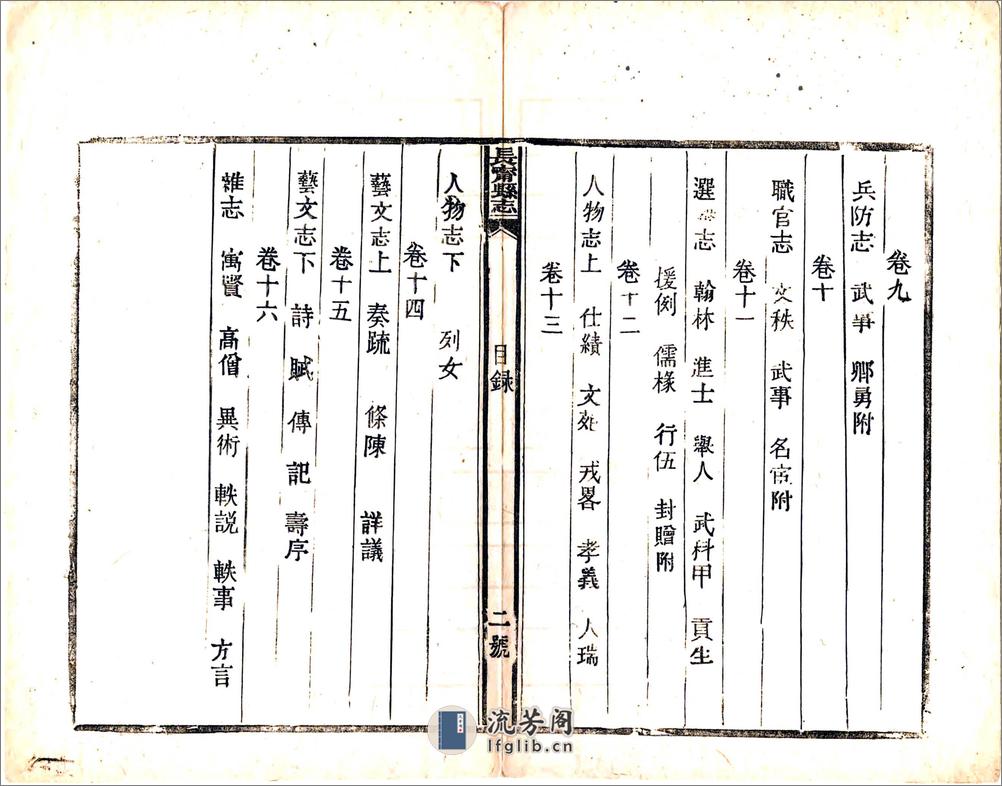 卷九
兵防志 武事 鄉勇附
卷十
職官志 文秩 武事 名宦附
卷十一
選舉志 翰林 進士 舉人 武科甲 貢生
援例 儒椽 行伍 封贈附
卷十二
人物志上 仕績 文苑 戎畧 孝義 人瑞
卷十三
長甯縣志
目錄
二號
人物志下 列女
卷十四
藝文志上 奏疏 條陳 詳議
卷十五
藝文志下 詩 賦 傳 記 壽序
卷十六
雜志 寓賢 高僧 異術 軼説 軼事 方言
流芳阁
lfglib.cn